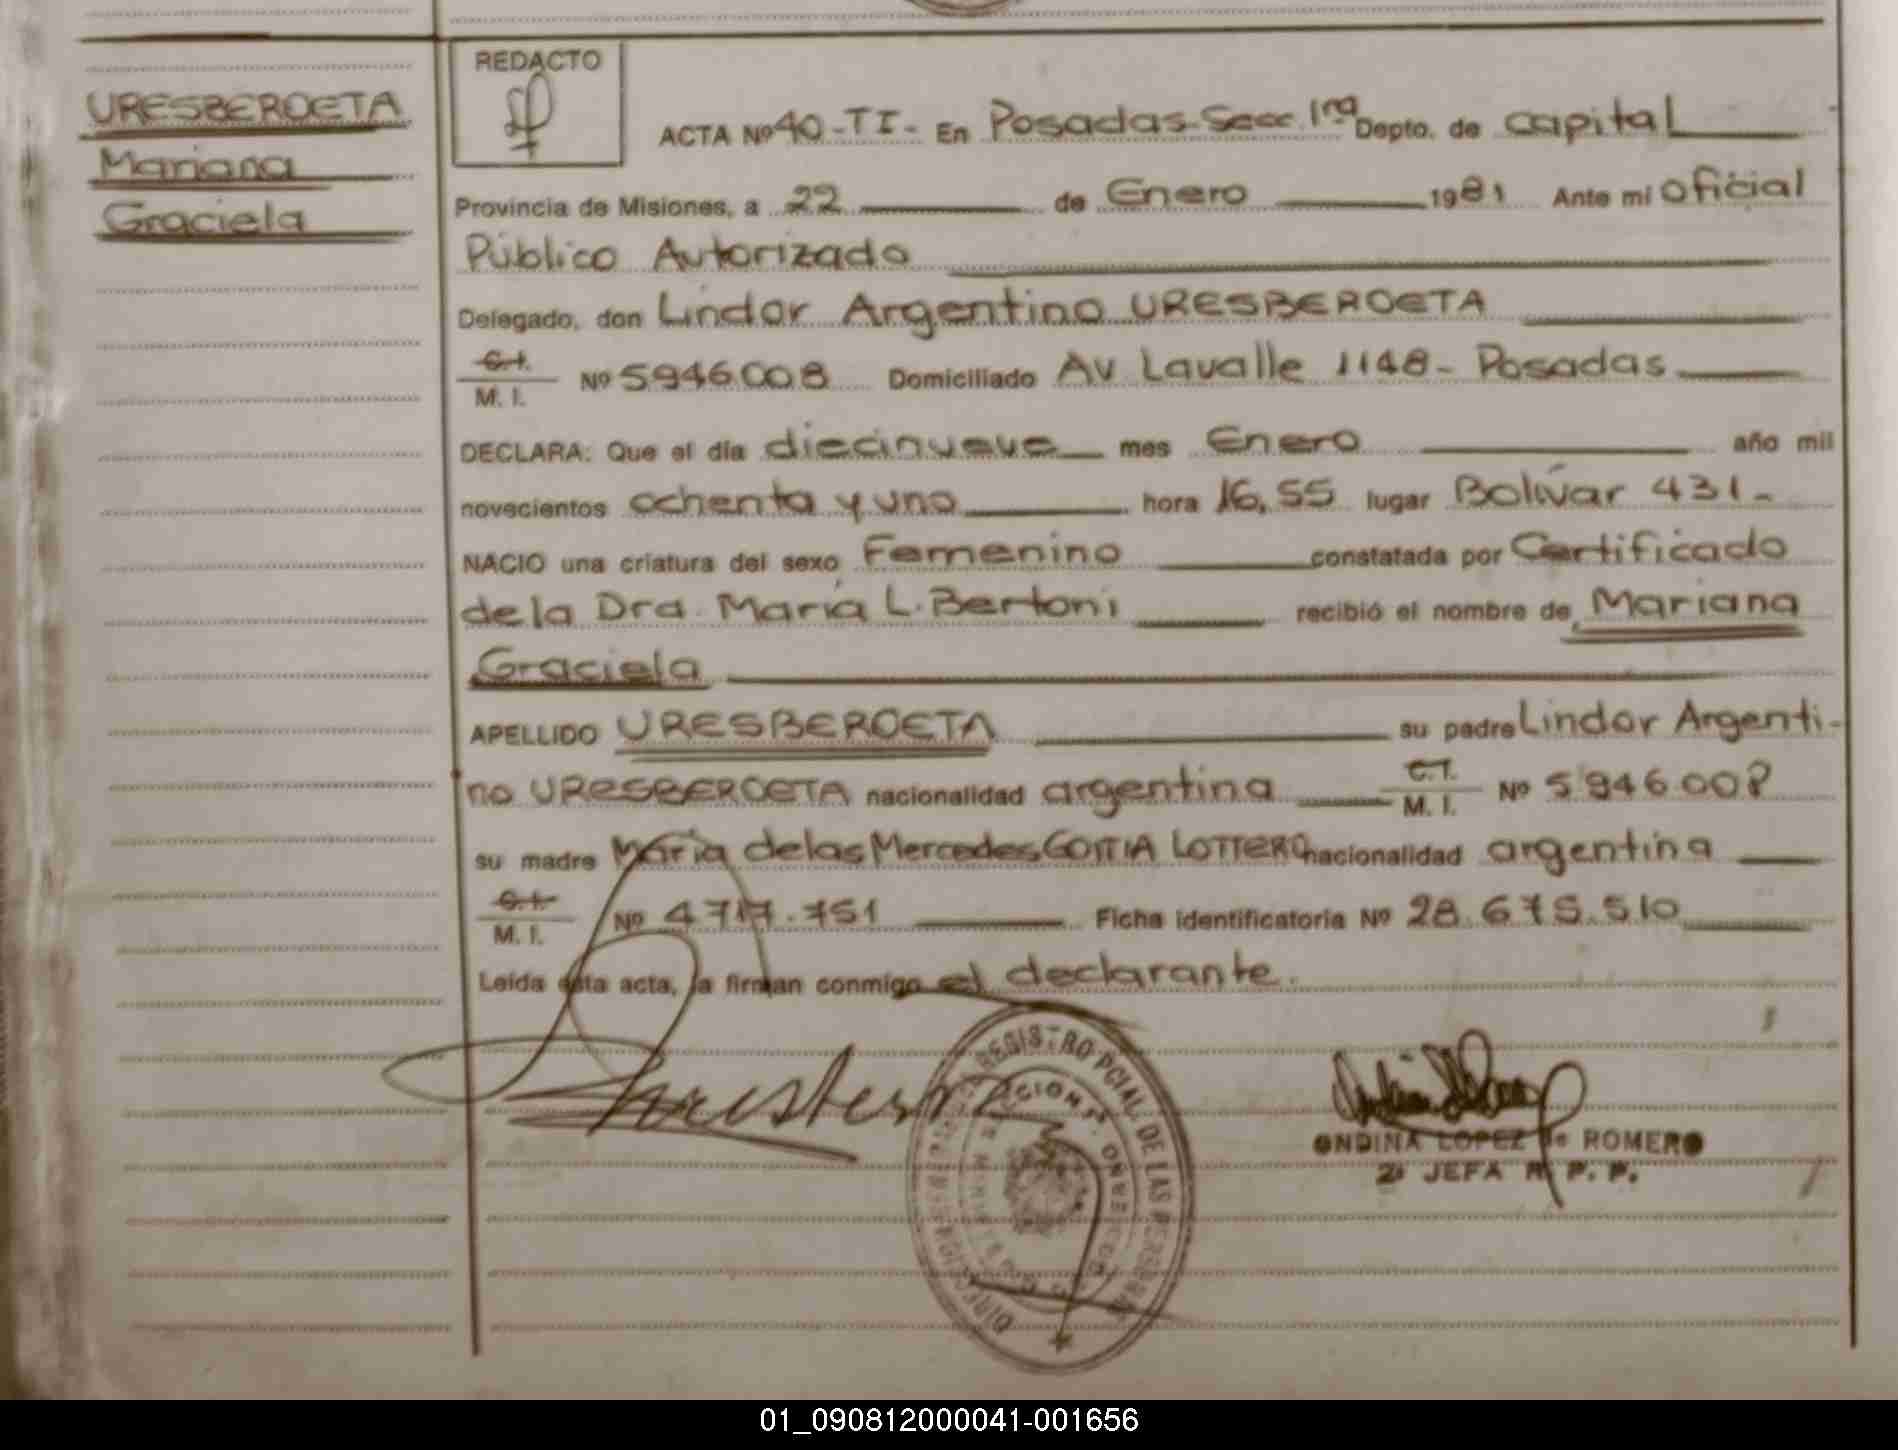 URESBEROETA
Mariana
Graciela
REDACTO
ACTA Nº 40-TI- En Posadas-Secc. 1ra Depto. de capital
Provincia de Misiones, a 22 de Enero 1981 Ante mi oficial
Público Autorizado
Delegado, don Lindor Argentino URESBEROETA
C.I.
M. I. Nº 5946.008 Domiciliado Av Lavalle 1148- Posadas
DECLARA: Que el día diecinueve mes Enero año mil
novecientos ochenta y uno hora 16,55 lugar Bolívar 431-
NACIO una criatura del sexo Femenino constatada por Certificado
de la Dra. María L. Bertoni recibió el nombre de Mariana
Graciela
APELLIDO URESBEROETA su padre Lindor Argenti-
no URESBEROETA nacionalidad argentina C.I. M. I. Nº 5946.008
su madre María de las Mercedes GOITIA LOTTERO nacionalidad argentina
C.I.
M. I. Nº 4717.751 Ficha identificatoria Nº 28.675.510
Leída esta acta, la firman conmigo el declarante.
REGISTRO PCIAL. DE LAS PERSONAS
ONDINA LOPEZ de ROMERO
2ª JEFA R. P. P.
01_090812000041-001656